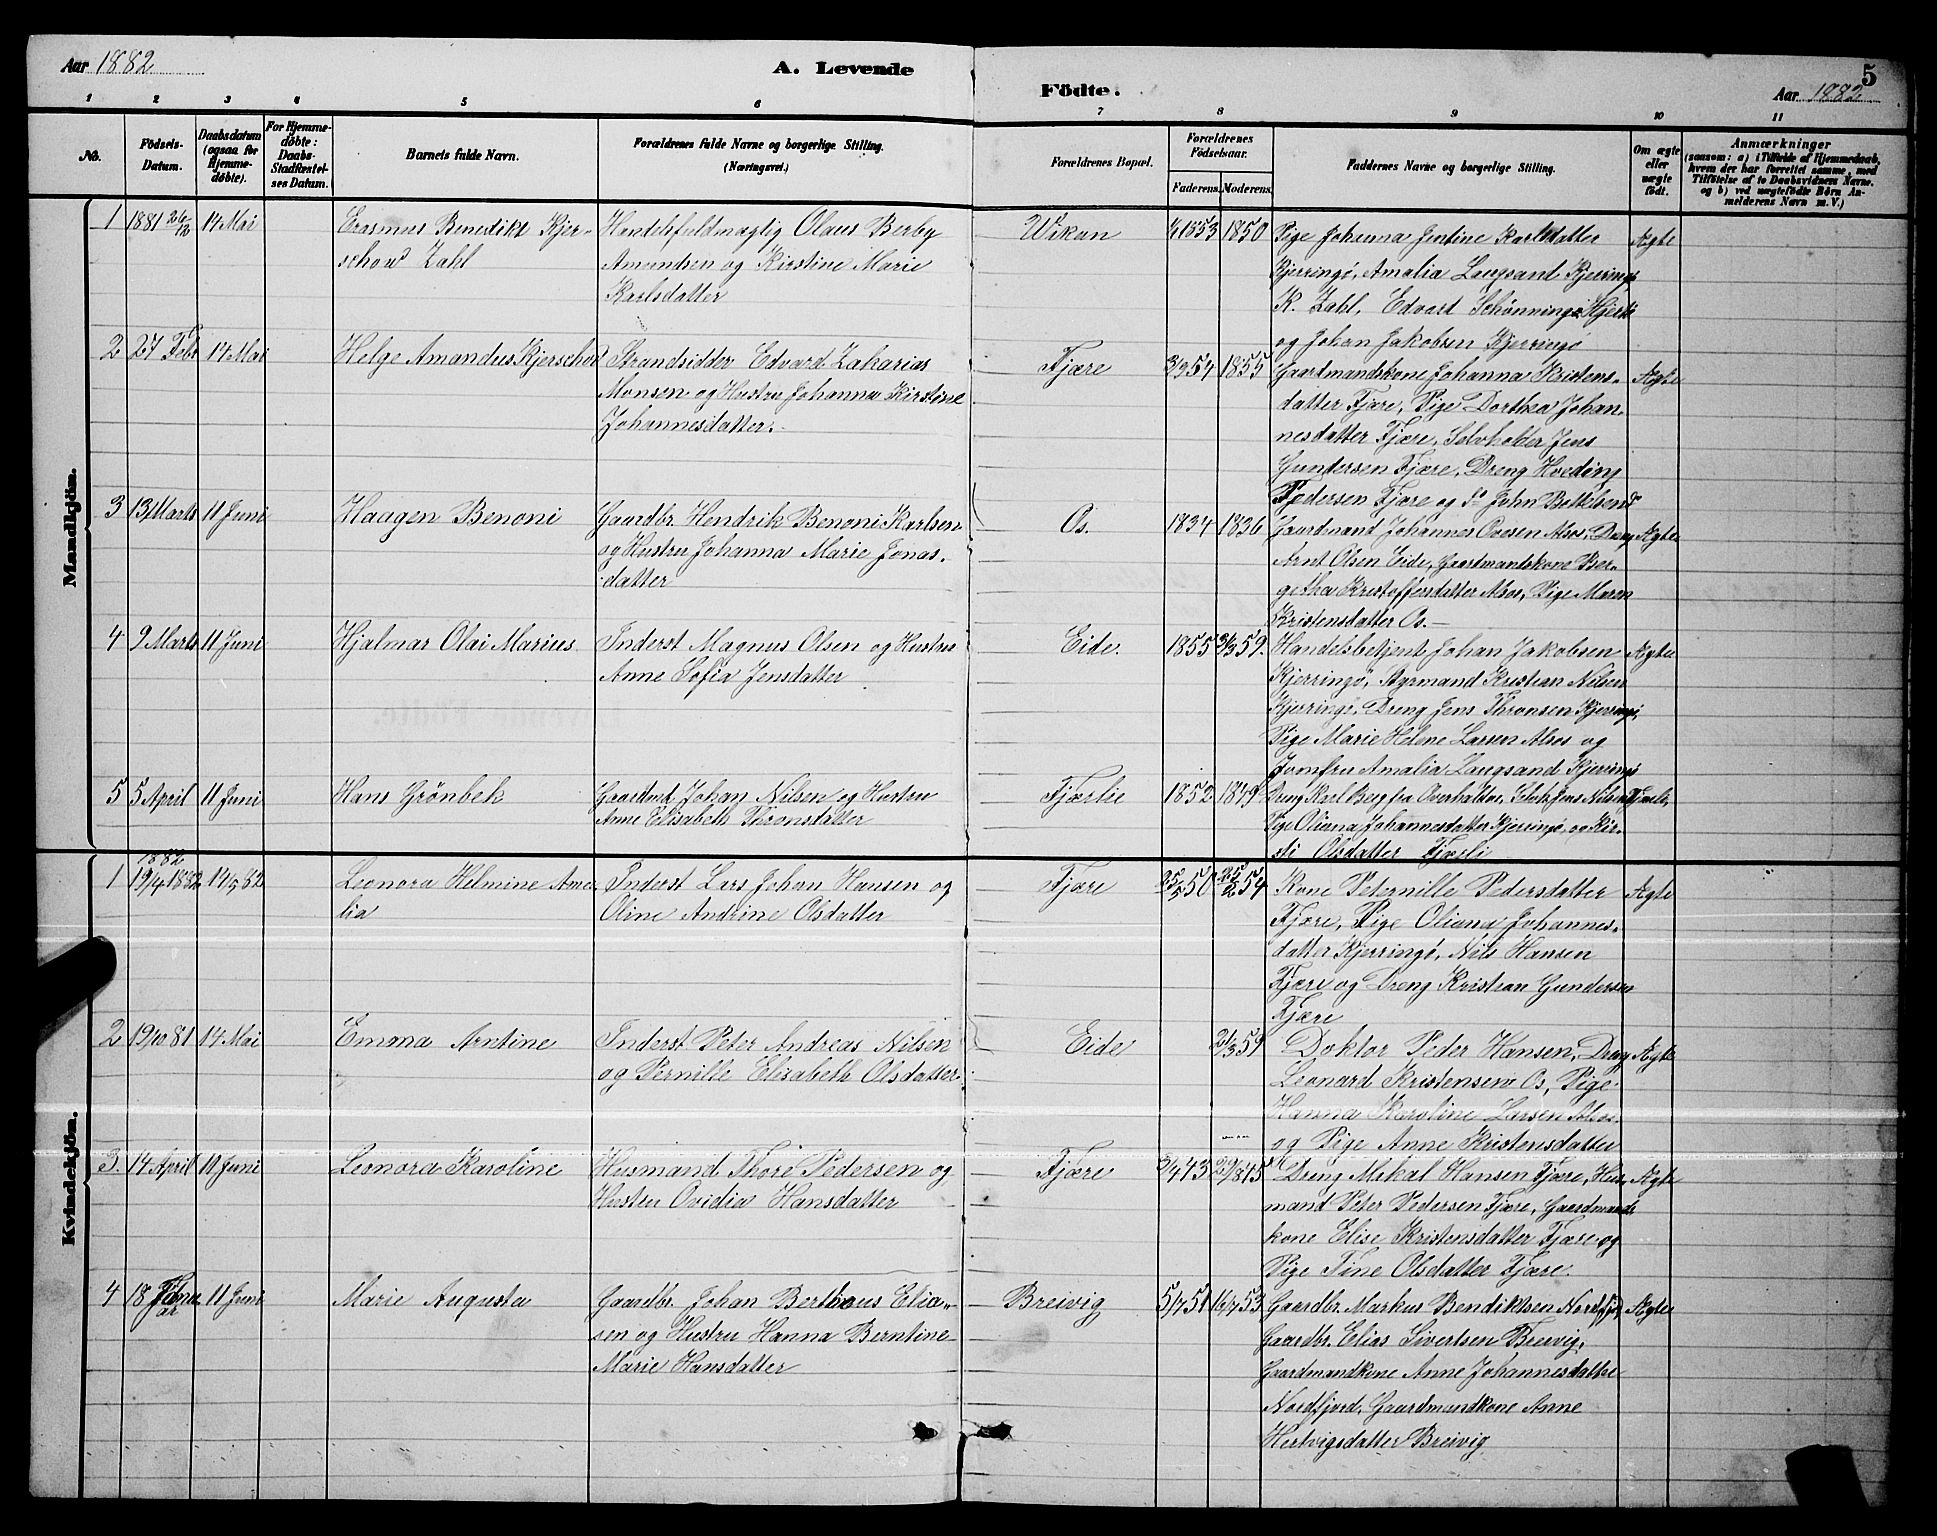 Aar 1882
A. Levende
Födte.
5
Aar 1882
1 2 3 4 5 6 7 8 9 10 11
No.
Födsels-
Datum.
Daabsdatum
(ogsaa for
Hjemme-
döbte).
For Hjemme-
döbte:
Daabs-
Stadfæstel-
ses Datum.
Barnets fulde Navn.
Forældrenes fulde Navne og borgerlige Stilling.
(Næringsvei.)
Forældrenes Bopæl.
Forældrenes
Födselsaar.
Faderens. Moderens.
Faddernes Navne og borgerlige Stilling.
Om ægte
eller
uægte
födt.
Anmærkninger
(saasom: a) i Tilfælde af Hjemmedaab,
hvem der har forrettet samme, med
Tilföielse af to Daabsvidners Navne,
og b) ved uægtefödte Börn An-
melderens Navn m. V.)
Mandkjön.
1 1881 26/12 14 Mai
Erasmus Benedikt Kjer-
schow Zahl
Handelsfuldmægtig Olaus Berby
Amundsen og Kirstine Marie
Karlsdatter
Wikan
1853 1850
Pige Johanna Jentine Karlsdatter
Kjerringö, Amalia Langsand Kjerringö
K. Zahl, Edvart Schønning
og Johan Jakobsen Kjerringö
Ægte
2 27 Febr 14 Mai
Helge Amandus Kjerschow
Strandsidder Edvard Zakarias
Monsen og Hustru Johanna Kirstine
Johannesdatter.
Fjære
3/9 54 1855
Gaardmandskone Johanna Kristens-
datter Fjære, Pige Dorthea Johan-
nesdatter Fjære, Selvholder Jens
Gundersen Fjære, Dreng Hveding
Pedersen Fjære og John Bertelsen
Ægte
3 13 Marts 11 Juni
Haagen Benoni
Gaardbr. Hendrik Benoni Karlsen
og Hustru Johanna Marie Jonas-
datter
Os.
1834 1836
Gaardmand Johannes Ovesen Alsos, Dreng
Arnt Olsen Eide, Gaardmandskone Ber-
getha Kristoffersdatter Alsos, Pige Maren
Kristensdatter Os.
Ægte
4 9 Marts 11 Juni
Hjalmar Olai Marius
Inderst Magnus Olsen og Hustru
Anne Sofia Jensdatter
Eide.
1855 59.
Handelsbetjent Johan Jakobsen
Kjerringö, Styrmand Kristian Nilsen
Kjerringö, Dreng Jens Thronsen Kjerringö,
Pige Marie Helene Larsen Alsos og
Jomfru Amalia Langsand Kjerringö
Ægte
5 5 April 11 Juni
Hans Grönbek
Gaardmd. Johan Nilsen og Hustru
Anne Elisabeth Thronsdatter
Fjærlie
1852 1849
Dreng Karl Berg fra Overhalden, Jens Nilsen
Pige Oliana Johannesdatter Kjerringö, og Kir-
sti Olsdatter Fjærli
Kvindekjön.
1 1882
19/4 1882 14/5 82
Leonora Helmine Ama-
lia
Inderst Lars Johan Hansen og
Oline Andrine Olsdatter
Fjære
25/5 50 25/2 54
Kone Peternille Pedersdatter
Fjære, Pige Oliana Johannes-
datter Kjerringö, Nils Hansen
Fjære og Dreng Kristian Gundersen
Fjære
Ægte
2 19/10 81 14 Mai
Emma Arntine
Inderst Peter Andreas Nilsen
og Pernille Elisabeth Olsdatter
Eide
2/3 59
Doktor Peder Hansen, Dreng
Leonard Kristensen Os, Pige
Hanna Karoline Larsen Alsos
og Pige Anne Kristensdatter
Ægte
3. 14 April 11 Juni
Leonora Karoline
Husmand Thore Pedersen og
Hustru Ovidia Hansdatter
Fjære
2/4 43 1845
Dreng Mikal Hansen Fjære, Hus-
mand Peter Pedersen Fjære, Gaardmands
kone Elise Kristensdatter Fjære og
Pige Tine Olsdatter Fjære.
Ægte
4 18 Januar 11 Juni
Marie Augusta
Gaardbr. Johan Berthous Elia-
sen og Hustru Hanna Berntine
Marie Hansdatter
Breivig
5/7 51 16/7 53
Gaardbr. Markus Bendiktsen Nordfjord
Gaardbr. Elias Sivertsen Breivig,
Gaardmandkone Anne Johannesdatter
Nordfjord, Gaardmandkone Anne
Hertvigsdatter Breivig
Ægte